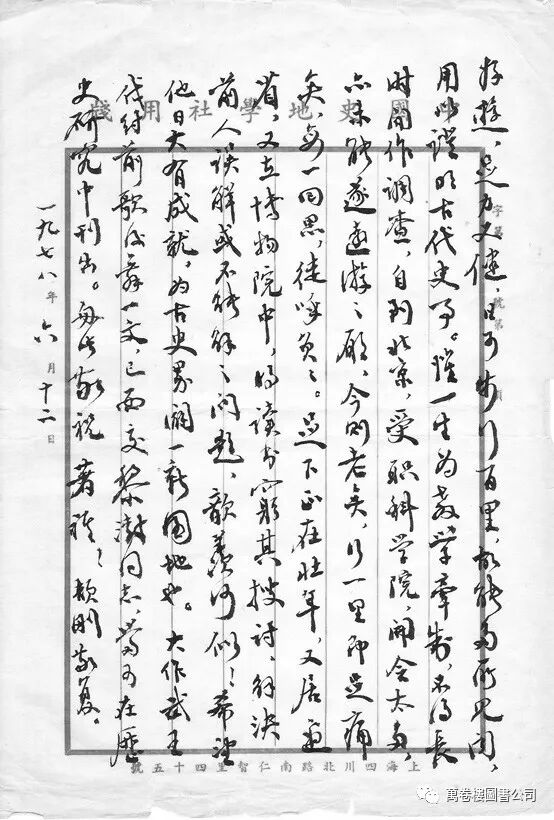 國史地學社用牋
字第 號第 頁
好遊，足力又健，日可步行百里，故能多所見聞，
用以證明古代史事。惟一生为教學牽制，不得長
时间作調查，自到北京，受职科学院，開会太多，
亦未能遂遠游之願，今则老矣，行一里即足痛
矣，每一回思，徒呼负负。足下正在壯年，又居邊
省，又在博物院中，将读书窮其搜討，解決
前人误解或不能解之问題，歆羨何似！希望
他日大有成就，为古史界闢一新園地也。大作武王
伐纣前歌後舞一文，已面交黎澍同志，当可在歷
史研究中刊出。匆此敬祝 著祺！ 頡刚敬复。
一九七八年六月十二日
上海四川北路南仁智里四十五號
萬卷樓圖書公司